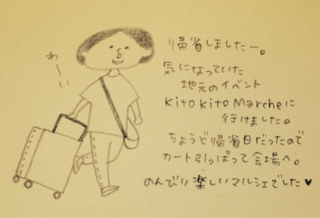 わーい
帰省しましたー。
気になっていた
地元のイベント
Kito Kito Marcheに
行けました。
ちょうど帰省日だったので
カート引っぱって会場へ。
のんびり楽しいマルシェでした♥